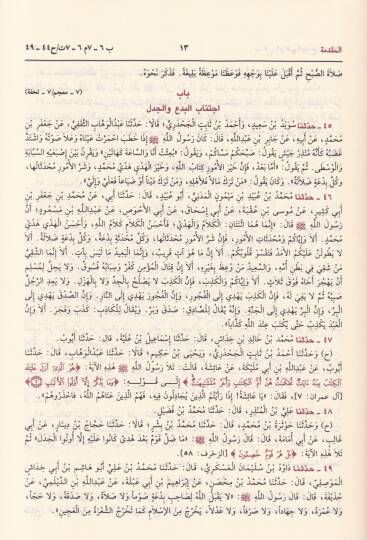 المقدمة ١٣ ب ٦ - ٧م ٦ - ٧ت/ح٤٤ - ٤٩
صَلاَةَ الصُّبْحِ ثُمَّ أَقْبَلَ عَلَيْنَا بِوَجْهِهِ فَوَعَظَنَا مَوْعِظَةً بَلِيغَةً. فَذَكَرَ نَحْوَهُ.
باب
(٧ - معجم/٧ - تحفة)
اجتناب البدع والجدل
٤٥ - حدثنا سُوَيْدُ بْنُ سَعِيدٍ، وَأَحْمَدُ بْنُ ثَابِتٍ الْجَحْدَرِيُّ؛ قَالاَ: حَدَّثَنَا عَبْدُالْوَهَّابِ الثَّقَفِيُّ، عَنْ جَعْفَرِ بْنِ
مُحَمَّدٍ، عَنْ أَبِيهِ، عَنْ جَابِرِ بْنِ عَبْدِاللهِ، قَالَ: كَانَ رَسُولُ اللهِ ﷺ إِذَا خَطَبَ احْمَرَّتْ عَيْنَاهُ وَعَلاَ صَوْتُهُ وَاشْتَدَّ
غَضَبُهُ كَأَنَّهُ مُنْذِرُ جَيْشٍ يَقُولُ: صَبَّحَكُمْ مَسَّاكُمْ، وَيَقُولُ: «بُعِثْتُ أَنَا وَالسَّاعَةَ كَهَاتَيْنِ» وَيَقْرُنُ بَيْنَ إِصْبَعَيْهِ السَّبَّابَةِ
وَالْوُسْطَى. ثُمَّ يَقُولُ: «أَمَّا بَعْدُ، فَإِنَّ خَيْرَ الأُمُورِ كِتَابُ اللهِ، وَخَيْرَ الْهَدْيِ هَدْيُ مُحَمَّدٍ، وَشَرَّ الأُمُورِ مُحْدَثَاتُهَا،
وَكُلَّ بِدْعَةٍ ضَلاَلَةٌ». وَكَانَ يَقُولُ: «مَنْ تَرَكَ مَالاً فَلأَهْلِهِ، وَمَنْ تَرَكَ دَيْناً أَوْ ضَيَاعاً فَعَلَيَّ وَإِلَيَّ».
٤٦ - حدثنا مُحَمَّدُ بْنُ عُبَيْدِ بْنِ مَيْمُونٍ الْمَدَنِيُّ، أَبُو عُبَيْدٍ، قَالَ: حَدَّثَنَا أَبِي، عَنْ مُحَمَّدِ بْنِ جَعْفَرِ بْنِ
أَبِي كَثِيرٍ، عَنْ مُوسَى بْنِ عُقْبَةَ، عَنْ أَبِي إِسْحَاقَ، عَنْ أَبِي الأَحْوَصِ، عَنْ عَبْدِاللهِ بْنِ مَسْعُودٍ؛ أَنَّ
رَسُولَ اللهِ ﷺ قَالَ: «إِنَّمَا هُمَا اثْنَتَانِ: الْكَلاَمُ وَالْهَدْيُ؛ فَأَحْسَنُ الْكَلاَمِ كَلاَمُ اللهِ، وَأَحْسَنُ الْهَدْيِ هَدْيُ
مُحَمَّدٍ. أَلاَ وَإِيَّاكُمْ وَمُحْدَثَاتِ الأُمُورِ، فَإِنَّ شَرَّ الأُمُورِ مُحْدَثَاتُهَا، وَكُلُّ مُحْدَثَةٍ بِدْعَةٌ، وَكُلُّ بِدْعَةٍ ضَلاَلَةٌ. أَلاَ
لاَ يَطُولَنَّ عَلَيْكُمُ الأَمَدُ فَتَقْسُوَ قُلُوبُكُمْ. أَلاَ إِنَّ مَا هُوَ آتٍ قَرِيبٌ، وَإِنَّمَا الْبَعِيدُ مَا لَيْسَ بِآتٍ. أَلاَ إِنَّمَا الشَّقِيُّ
مَنْ شَقِيَ فِي بَطْنِ أُمِّهِ، وَالسَّعِيدُ مَنْ وُعِظَ بِغَيْرِهِ، أَلاَ إِنَّ قِتَالَ الْمُؤْمِنِ كُفْرٌ وَسِبَابُهُ فُسُوقٌ. وَلاَ يَحِلُّ لِمُسْلِمٍ
أَنْ يَهْجُرَ أَخَاهُ فَوْقَ ثَلاَثٍ. أَلاَ وَإِيَّاكُمْ وَالْكَذِبَ، فَإِنَّ الْكَذِبَ لاَ يَصْلُحُ بِالْجِدِّ وَلاَ بِالْهَزْلِ. وَلاَ يَعِدِ الرَّجُلُ
صَبِيَّهُ ثُمَّ لاَ يَفِي لَهُ، فَإِنَّ الْكَذِبَ يَهْدِي إِلَى الْفُجُورِ، وَإِنَّ الْفُجُورَ يَهْدِي إِلَى النَّارِ. وَإِنَّ الصِّدْقَ يَهْدِي إِلَى
الْبِرِّ، وَإِنَّ الْبِرَّ يَهْدِي إِلَى الْجَنَّةِ. وَإِنَّهُ يُقَالُ لِلصَّادِقِ: صَدَقَ وَبَرَّ. وَيُقَالُ لِلْكَاذِبِ: كَذَبَ وَفَجَرَ. أَلاَ وَإِنَّ
الْعَبْدَ يَكْذِبُ حَتَّى يُكْتَبَ عِنْدَ اللهِ كَذَّاباً».
٤٧ - حدثنا مُحَمَّدُ بْنُ خَالِدِ بْنِ خِدَاشٍ، قَالَ: حَدَّثَنَا إِسْمَاعِيلُ بْنُ عُلَيَّةَ، قَالَ: حَدَّثَنَا أَيُّوبُ.
(ح) وَحَدَّثَنَا أَحْمَدُ بْنُ ثَابِتٍ الْجَحْدَرِيُّ، وَيَحْيَى بْنُ حَكِيمٍ؛ قَالاَ: حَدَّثَنَا عَبْدُالْوَهَّابِ، قَالَ: حَدَّثَنَا أَيُّوبُ،
عَنْ عَبْدِاللهِ بْنِ أَبِي مُلَيْكَةَ، عَنْ عَائِشَةَ، قَالَتْ: تَلاَ رَسُولُ اللهِ ﷺ هَذِهِ الآيَةَ: ﴿هُوَ الَّذِي أَنزَلَ عَلَيْكَ
الْكِتَابَ مِنْهُ آيَاتٌ مُّحْكَمَاتٌ هُنَّ أُمُّ الْكِتَابِ وَأُخَرُ مُتَشَابِهَاتٌ﴾ إِلَى قَوْلِهِ: ﴿وَمَا يَذَّكَّرُ إِلَّا أُولُو الْأَلْبَابِ﴾
[آل عمران: ٧]. فَقَالَ: «يَا عَائِشَةُ! إِذَا رَأَيْتُمُ الَّذِينَ يُجَادِلُونَ فِيهِ، فَهُمُ الَّذِينَ عَنَاهُمُ اللهُ، فَاحْذَرُوهُمْ».
٤٨ - حدثنا عَلِيُّ بْنُ الْمُنْذِرِ، قَالَ: حَدَّثَنَا مُحَمَّدُ بْنُ فُضَيْلٍ.
(ح) وَحَدَّثَنَا حَوْثَرَةُ بْنُ مُحَمَّدٍ، قَالَ: حَدَّثَنَا مُحَمَّدُ بْنُ بِشْرٍ؛ قَالاَ: حَدَّثَنَا حَجَّاجُ بْنُ دِينَارٍ، عَنْ أَبِي
غَالِبٍ، عَنْ أَبِي أُمَامَةَ، قَالَ: قَالَ رَسُولُ اللهِ ﷺ: «مَا ضَلَّ قَوْمٌ بَعْدَ هُدًى كَانُوا عَلَيْهِ إِلاَّ أُوتُوا الْجَدَلَ» ثُمَّ
تَلاَ هَذِهِ الآيَةَ: ﴿بَلْ هُمْ قَوْمٌ خَصِمُونَ﴾ [الزخرف: ٥٨].
٤٩ - حدثنا دَاوُدُ بْنُ سُلَيْمَانَ الْعَسْكَرِيُّ، قَالَ: حَدَّثَنَا مُحَمَّدُ بْنُ عَلِيٍّ أَبُو هَاشِمِ بْنِ أَبِي خِدَاشٍ
الْمَوْصِلِيُّ، قَالَ: حَدَّثَنَا مُحَمَّدُ بْنُ مِحْصَنٍ، عَنْ إِبْرَاهِيمَ بْنِ أَبِي عَبْلَةَ، عَنْ عَبْدِاللهِ بْنِ الدَّيْلَمِيِّ، عَنْ
حُذَيْفَةَ، قَالَ: قَالَ رَسُولُ اللهِ ﷺ: «لاَ يَقْبَلُ اللهُ لِصَاحِبِ بِدْعَةٍ صَوْماً وَلاَ صَلاَةً، وَلاَ صَدَقَةً، وَلاَ حَجّاً،
وَلاَ عُمْرَةً، وَلاَ جِهَاداً، وَلاَ صَرْفاً، وَلاَ عَدْلاً، يَخْرُجُ مِنَ الإِسْلاَمِ كَمَا تَخْرُجُ الشَّعَرَةُ مِنَ الْعَجِينِ».